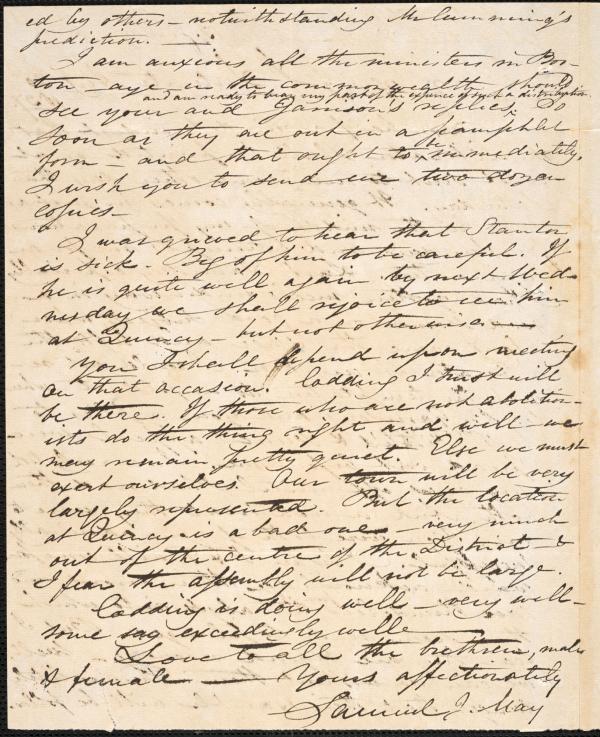 ed by others – notwithstanding Mr Cumming's
prediction. —
I am anxious all the ministers in Bos-
ton – aye in the commonwealth should
and am ready to bear my part of the expence of such a distribution.
see your and Garrison's replies. So
soon as they are out in a pamphlet
form – and that ought to be immediately,
I wish you to send me two dozen
copies –
I was grieved to hear that Stanton
is sick. Beg of him to be careful. If
he is quite well again by next Wed-
nesday we shall rejoice to see him
at Quincy – but not otherwise —
You I shall depend upon meeting
on that occasion. Codding I trust will
be there. If those who are not abolition-
ists do the thing right and well – we
may remain pretty quiet. Else we must
exert ourselves. Our town will be very
largely represented. But the location
at Quincy is a bad one – very much
out of the centre of the District – &
I fear the assembly will not be large.
Codding is doing well – very well –
some say exceedingly well —
Love to all the brethren, male
& female — Yours affectionately
Samuel J. May